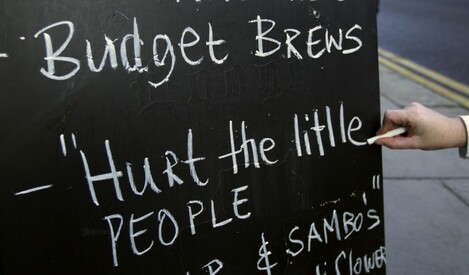 - Budget BREWS
- "Hurt the little
PEOPLE"
& SAMBO's